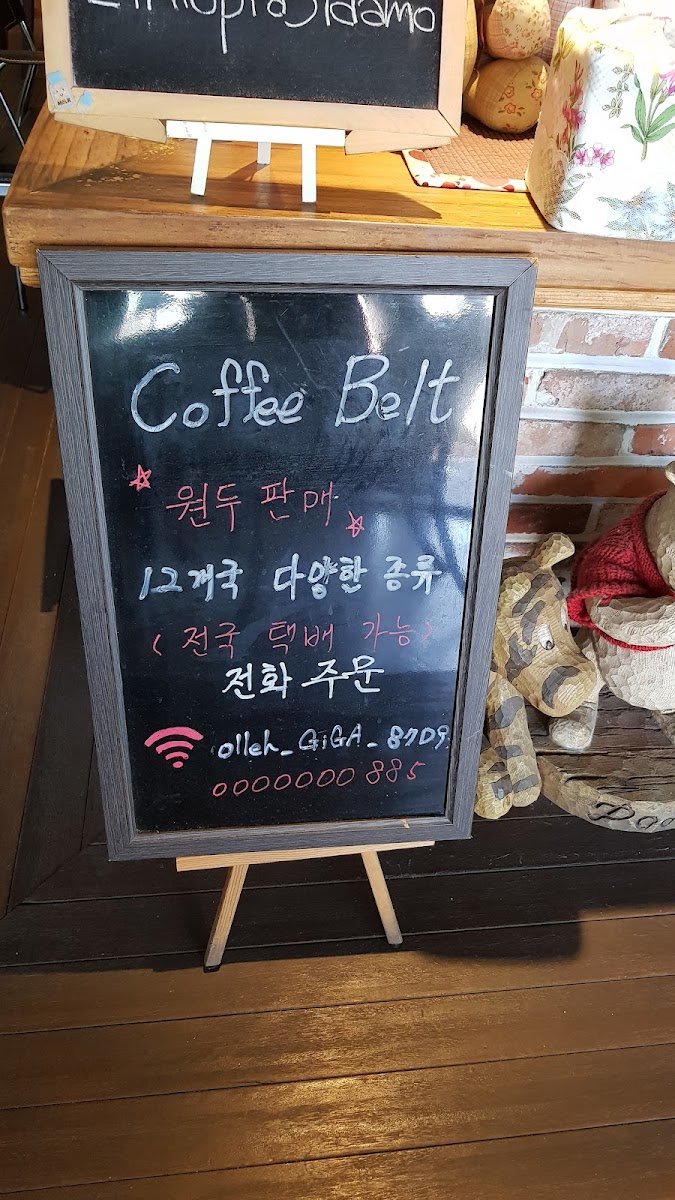 Ethiopia Sidamo
MILK
Coffee Belt
원두 판매
12개국 다양한 종류
(전국 택배 가능)
전화 주문
olleh_GiGA_87D9
0000000885